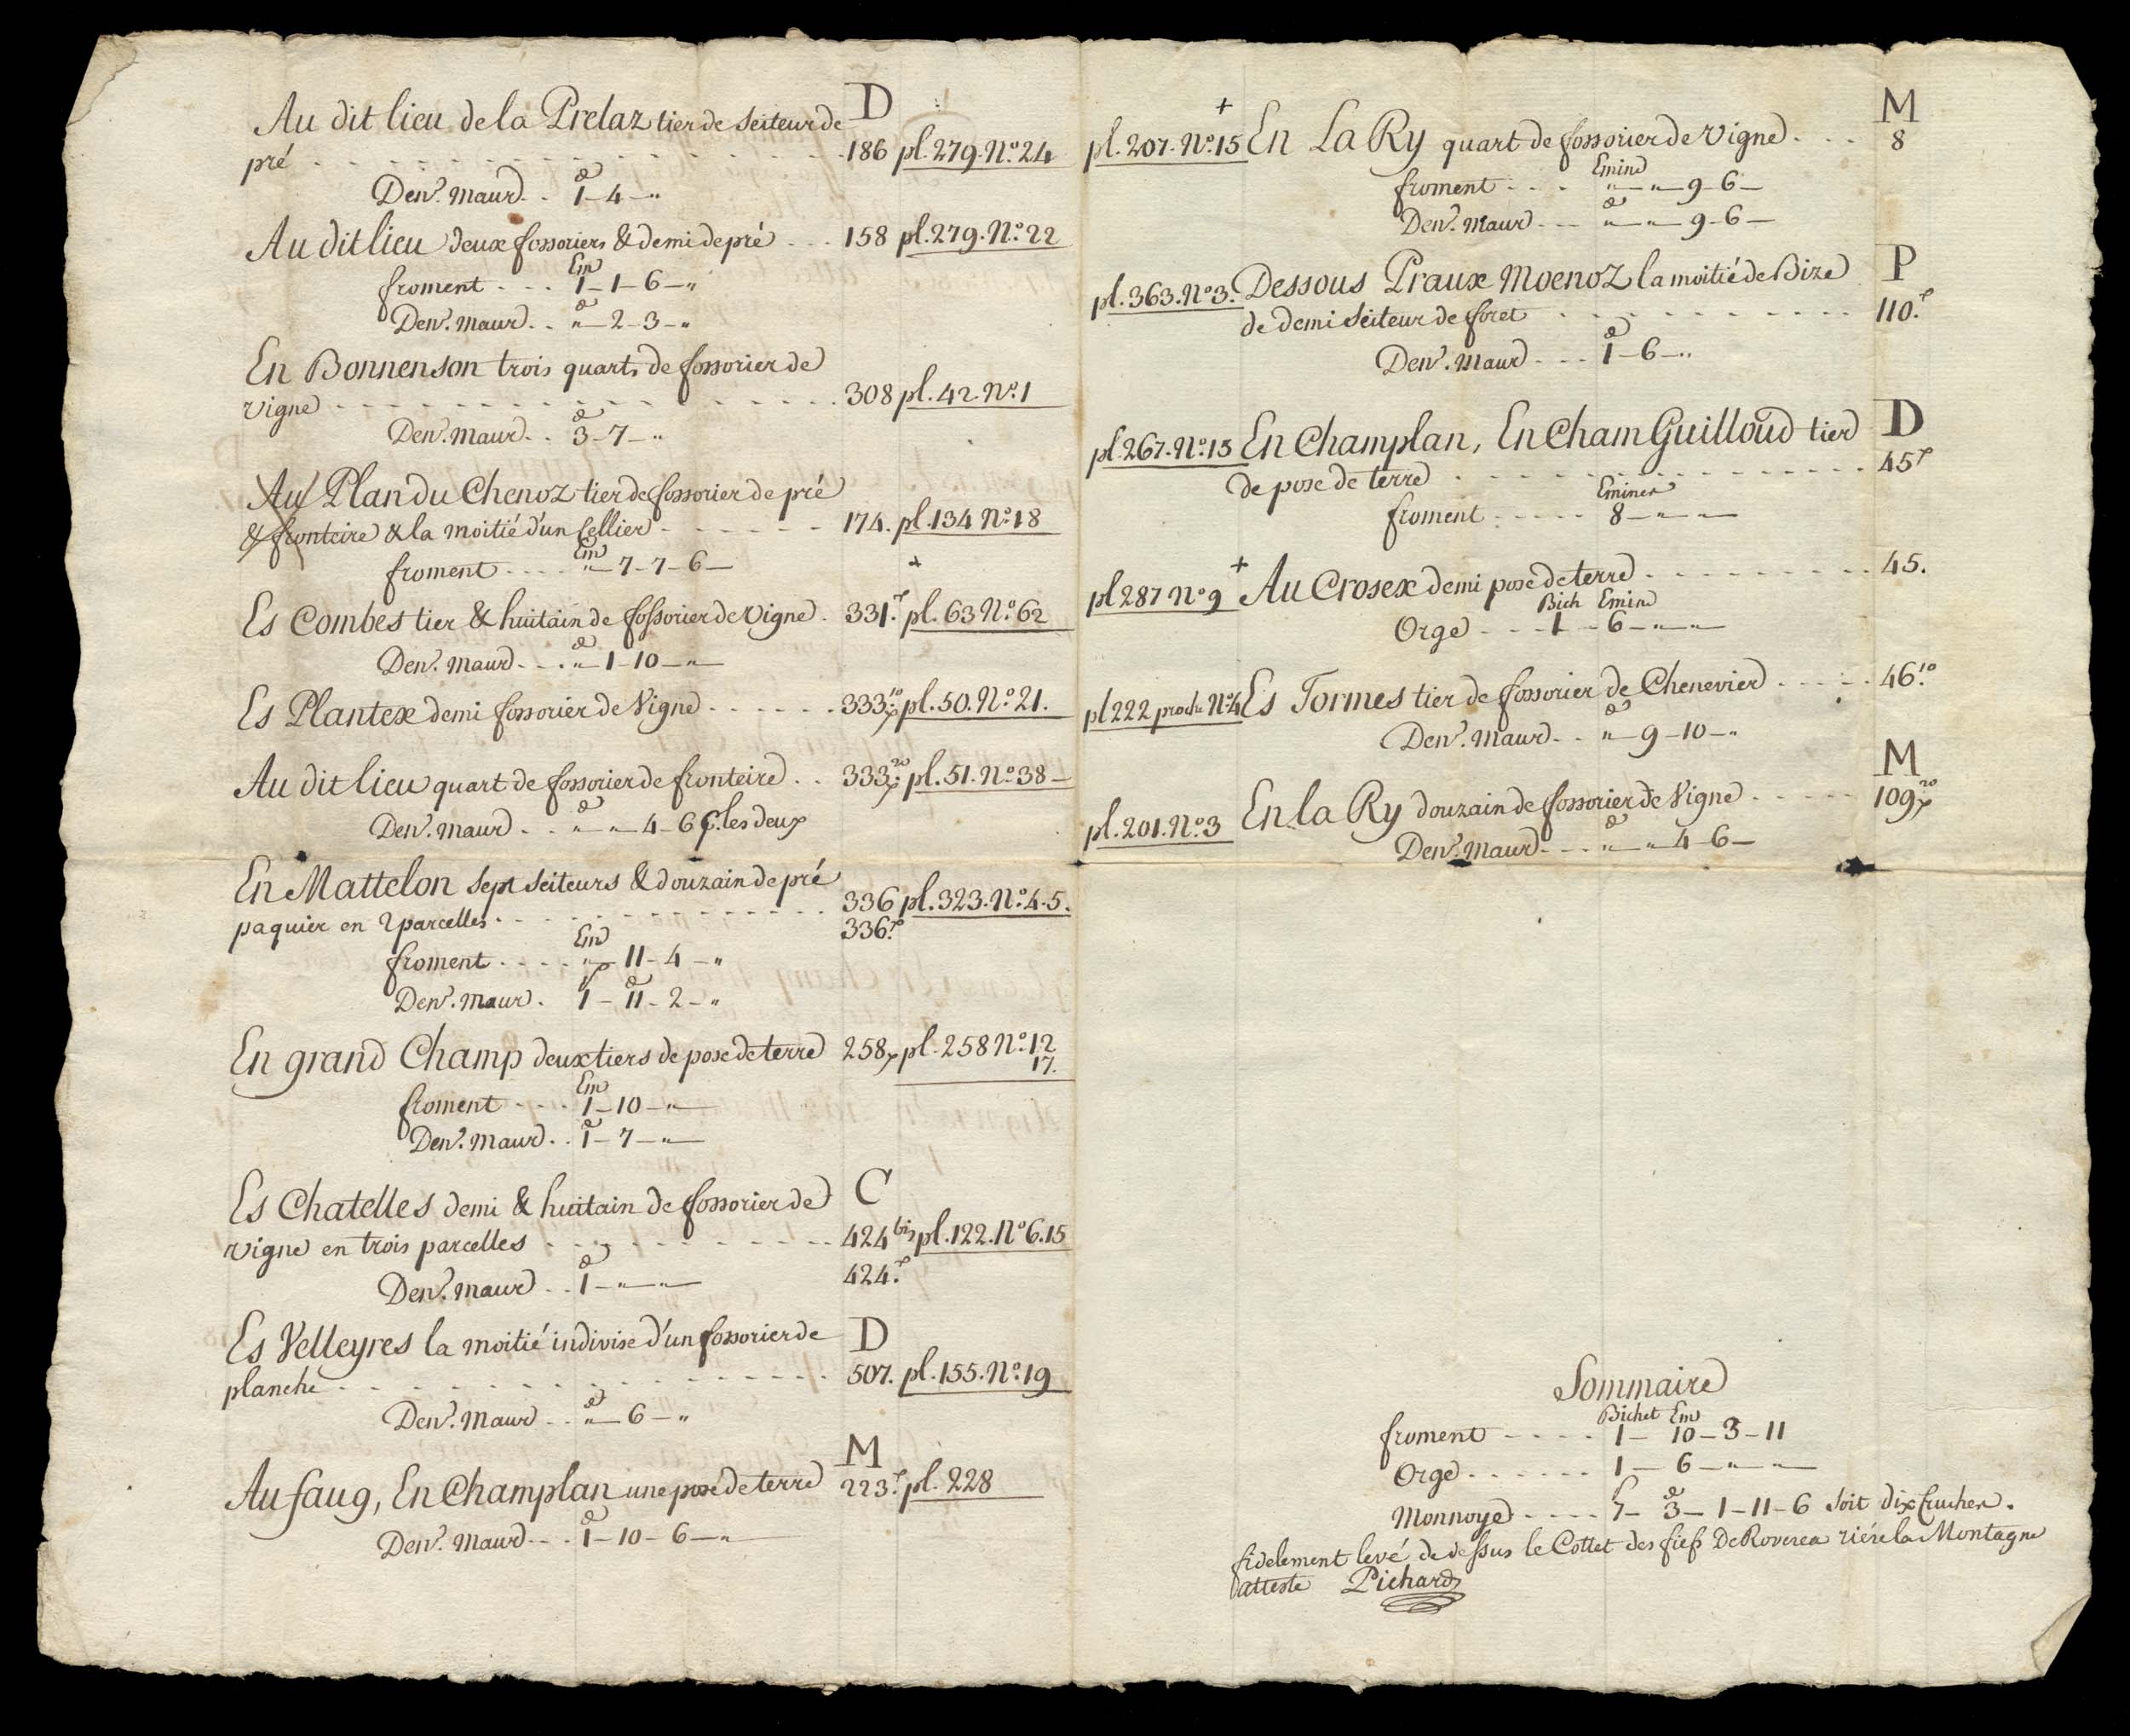 D
Au dit lieu de la Prelaz tier de seiteur de
pré - - - - - 186 pl. 279. No. 24
Denr. Maurd. . 1 - 4 - "
Au dit lieu deux fossoriers & demi de pré . . . 158 pl. 279. No. 22
Em
froment - - - 1 - 1 - 6 - "
Denr. Maurd. . " - 2 - 3 - "
En Bonnenson trois quarts de fossorier de
vigne - - - - - 308 pl. 42. No. 1
Denr. Maurd. . 3 - 7 - "
Au Plan du Chenoz tier de fossorier de pré
& fronteire & la moitié d'un Cellier - - - - 174. pl. 134 No. 18
Em
froment - - - - " - 7 - 7 - 6 - +
Es Combes tier & huitain de fossorier de vigne . 331. pl. 63 No. 62
Denr. Maurd - - . " - 1 - 10 - "
Es Plantex demi fossorier de Vigne - - - - - 333. 10 pl. 50. No. 21.
Au dit lieu quart de fossorier de fronteire . . 333. 20 pl. 51. No. 38 -
Denr. Maurd . . " - " - 4 - 6 p. les deux
En Mattelon sept seiteurs & douzain de pré
paquier en 2 parcelles - - - - - 336 pl. 323. No. 4. 5.
336.
Em
froment - - - - " - 11 - 4 - "
Denr. Maur . 1 - 11 - 2 - "
En grand Champ deux tiers de pose de terre 258 pl. 258 No. 12
17.
Em
froment - - - - 1 - 10 - "
Denr. Maurd. . 1 - 7 - "
C
Es Chatelles demi & huitain de fossorier de
vigne en trois parcelles - - - - - 424 bis pl. 122. No 6. 15
Denr. Maurd . . 1 - " - " 424.
D
Es Velleyres la moitié indivise d'un fossorier de
planche - - - - - 507. pl. 155. No. 19
Denr. Maurd . . " - 6 - "
M
Au faug, En Champlan une pose de terre 223. pl. 228
Denr. Maurd - - . 1 - 10 - 6 - "
+ M
pl. 207. No. 15 En La Ry quart de fossorier de vigne - . . . 8
Emind
froment - - - " - " - 9 - 6 -
Denr. Maurd - - " - " - 9 - 6 -
P
pl. 363. No 3. Dessous Praux Moenoz la moitié de Bize
de demi seiteur de foret - - - - - 110.
Denr. Maurd - - - 1 - 6 - "
D
pl. 267. No. 15 En Champlan, En Cham Guilloud tier
de pose de terre - - - - - 45
Emines
froment - - - - - 8 - " - " -
+
pl 287 No 9 Au Crosex demi pose de terre - - - - - 45.
Bich Emind
Orge - - - 1 - 6 - " - " -
pl 222 proche No. 4 Es Tormes tier de fossorier de Chenevier - - - - 46. 10
Denr. Maurd. . " - 9 - 10 - "
M
pl. 201. No. 3 En la Ry douzain de fossorier de Vigne - - - - - 109 20
Denr. Maurd - - " - " - 4 - 6 -
Sommaire
Bichet Em
froment - - - - 1 - 10 - 3 - 11
Orge - - - - - 1 - 6 - " - " -
Monnoye - - - - 7 - 3 - 1 - 11 - 6 soit dix Cruches.
fidelement levé de dessus le Cottet des fiefs De Roverea riére la Montagne
atteste Pichard